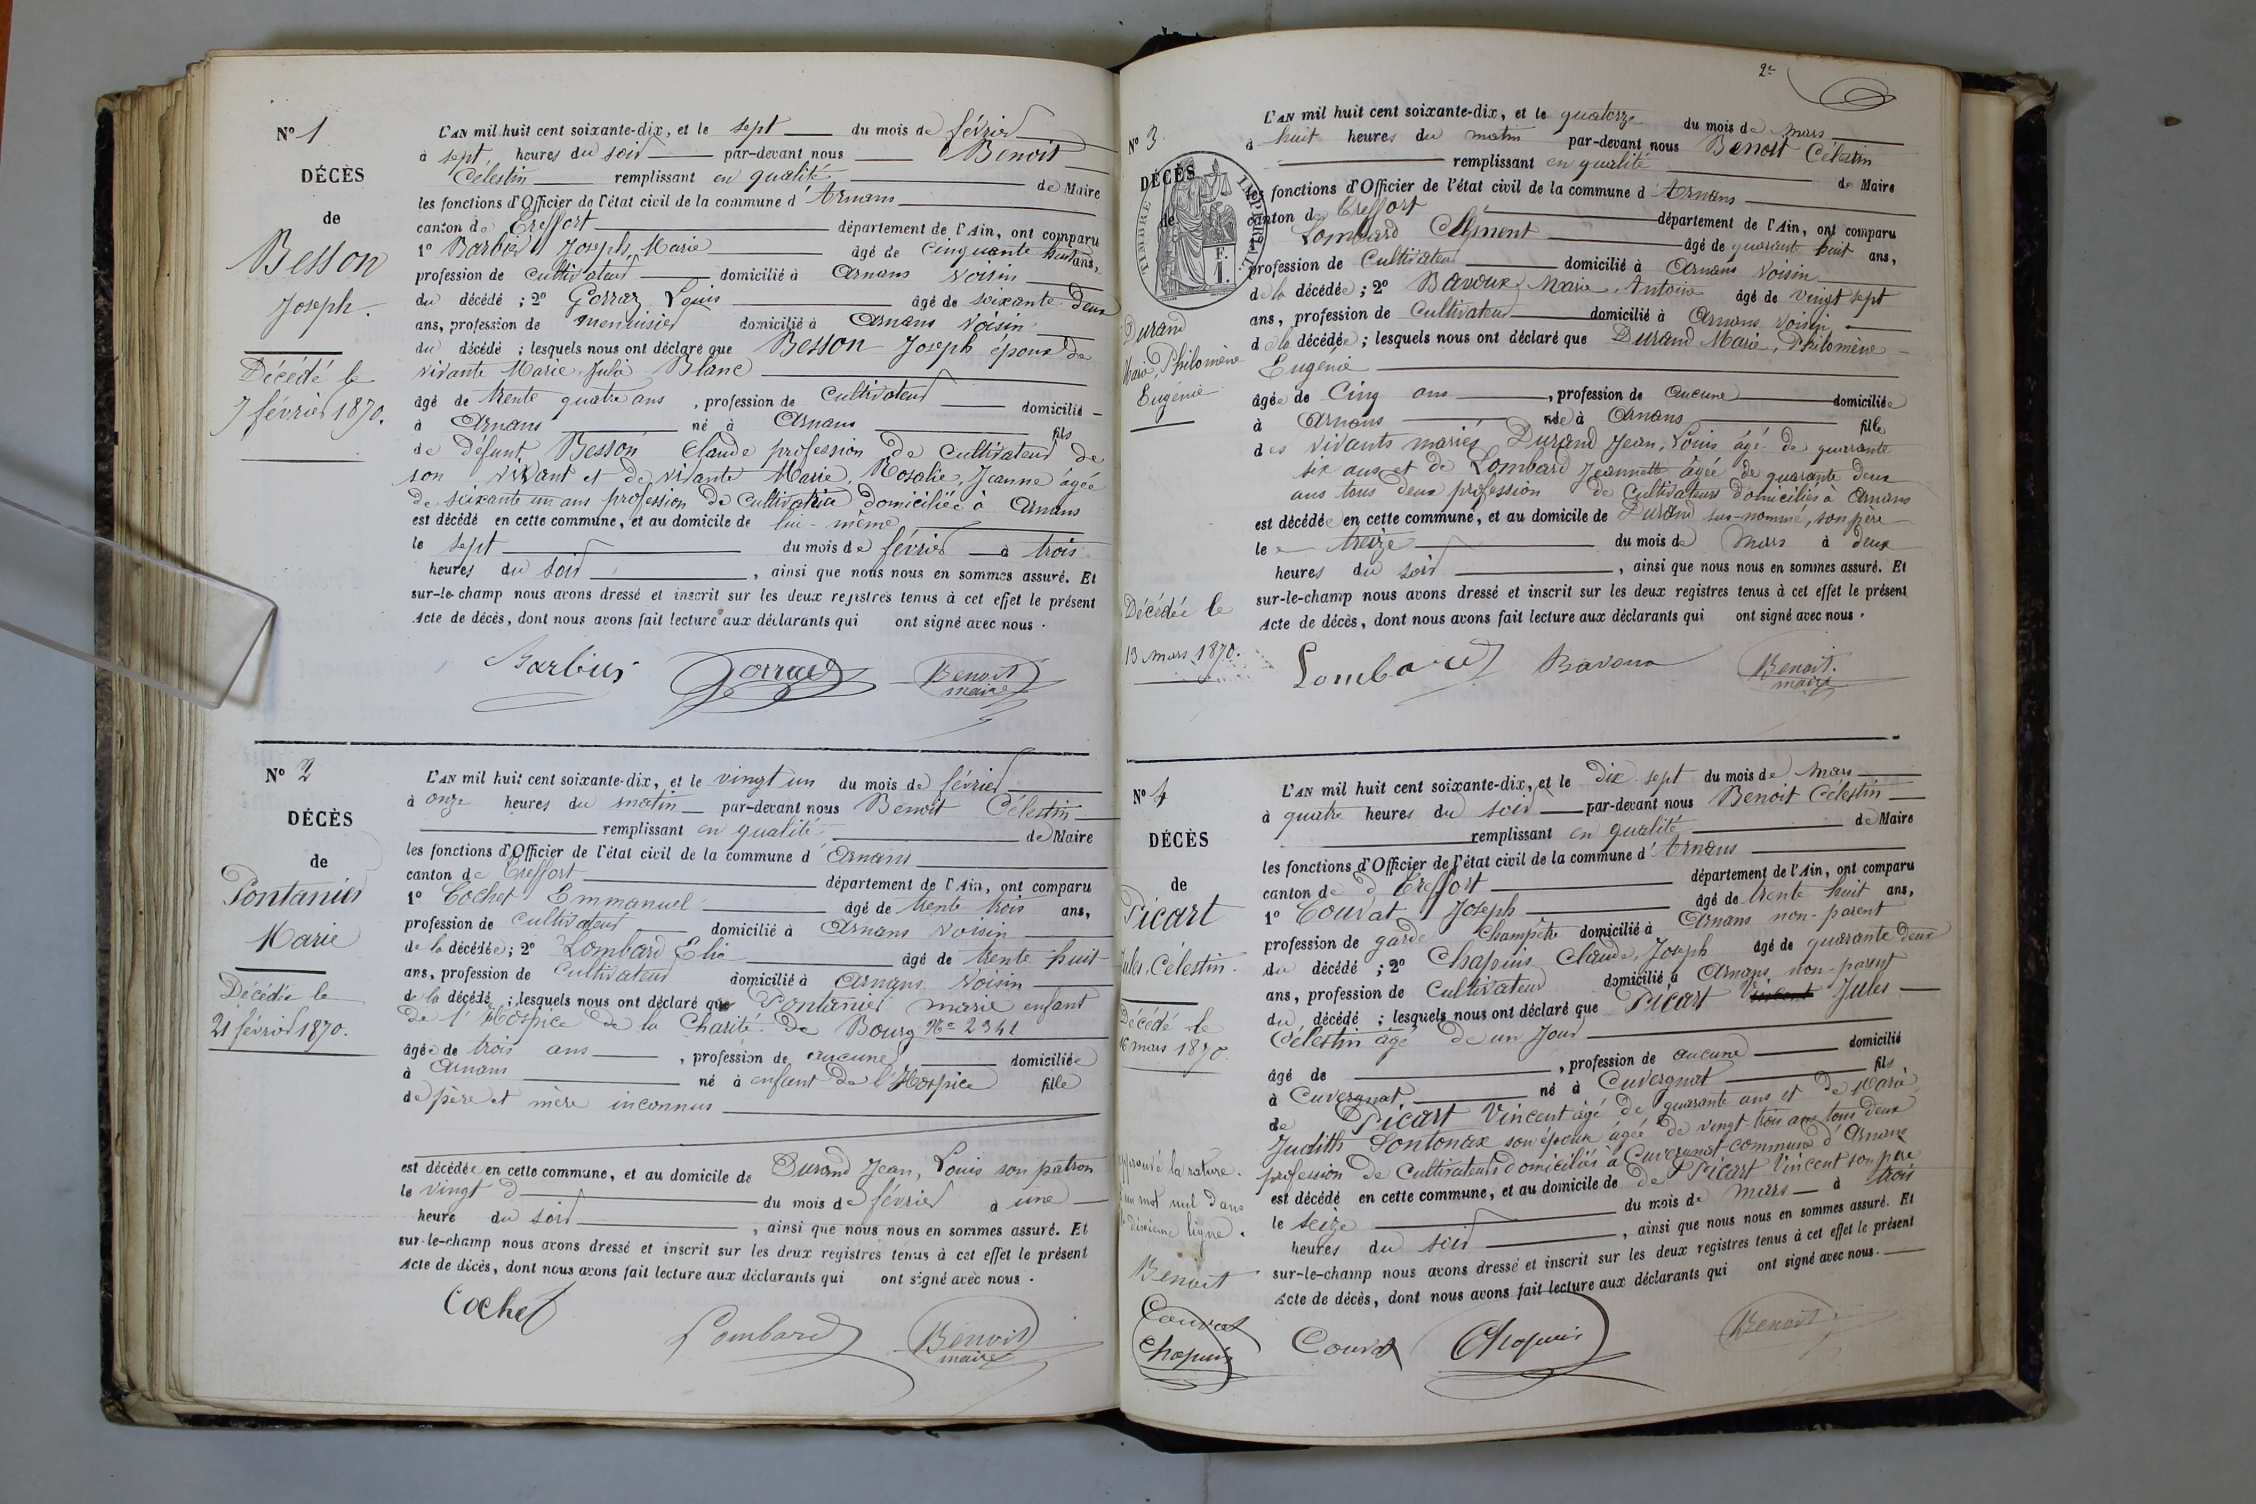 N° 1
DÉCÈS
de
Besson
Joseph.
Décédé le
7 février 1870.
L'AN mil huit cent soixante-dix, et le sept du mois de février
à sept heures du soir par-devant nous Benoit
Célestin remplissant en qualité de Maire
les fonctions d'Officier de l'état civil de la commune d'Arnans
canton de Treffort département de l'Ain, ont comparu
1° Barbier Joseph, Marie âgé de cinquante huit ans,
profession de cultivateur domicilié à Arnans voisin
du décédé ; 2° Gorraz Louis âgé de soixante deux
ans, profession de menuisier domicilié à Arnans voisin
du décédé ; lesquels nous ont déclaré que Besson Joseph époux de
vivante Marie, Julie Blanc
âgé de trente quatre ans, profession de cultivateur domicilié
à Arnans né à Arnans fils
de défunt Besson Claude profession de cultivateur de
son vivant et de vivante Marie, Rosalie, Jeanne âgée
de soixante un ans profession de cultivatrice domiciliée à Arnans
est décédé en cette commune, et au domicile de lui-même
le sept du mois de février à trois
heures du soir, ainsi que nous nous en sommes assuré. Et
sur-le-champ nous avons dressé et inscrit sur les deux registres tenus à cet effet le présent
Acte de décès, dont nous avons fait lecture aux déclarants qui ont signé avec nous.
Gorraz Benoit
maire
N° 2
DÉCÈS
de
Pontanier
Marie
Décédée le
21 février 1870.
L'AN mil huit cent soixante-dix, et le vingt un du mois de février
à onze heures du matin par-devant nous Benoit Célestin
remplissant en qualité de Maire
les fonctions d'Officier de l'état civil de la commune d'Arnans
canton de Treffort département de l'Ain, ont comparu
1° Cochet Emmanuel âgé de trente trois ans,
profession de cultivateur domicilié à Arnans voisin
de la décédée ; 2° Lombard Elie âgé de trente huit
ans, profession de cultivateur domicilié à Arnans voisin
de la décédé ; lesquels nous ont déclaré que Pontanier marie enfant
de l'Hospice de la Charité de Bourg N° 2341
âgée de trois ans, profession de aucune domiciliée
à Arnans né à enfant de l'Hospice fille
de père et mère inconnus
est décédée en cette commune, et au domicile de Durand Jean, Louis son patron
le vingt d du mois de février à une
heure du soir, ainsi que nous nous en sommes assuré. Et
sur-le-champ nous avons dressé et inscrit sur les deux registres tenus à cet effet le présent
Acte de décès, dont nous avons fait lecture aux déclarants qui ont signé avec nous.
Cochet Lombard Benoit
maire
2e
N° 3
DÉCÈS
de
TIMBRE IMPÉRIAL
1 F.
Durand
Marie, Philomène
Eugénie
Décédée le
13 mars 1870.
L'AN mil huit cent soixante-dix, et le quatorze du mois de mars
à huit heures du matin par-devant nous Benoit Célestin
remplissant en qualité de Maire
les fonctions d'Officier de l'état civil de la commune d'Arnans
canton de Treffort département de l'Ain, ont comparu
Lombard Clément âgé de quarante huit ans,
profession de Cultivateur domicilié à Arnans voisin
de la décédée ; 2° Bavoux Marie, Antoine âgé de vingt sept
ans, profession de Cultivateur domicilié à Arnans voisin
de la décédée ; lesquels nous ont déclaré que Durand Marie, Philomène
Eugénie
âgée de Cinq ans, profession de aucune domiciliée
à Arnans née à Arnans fille
des vivants mariés Durand Jean, Louis âgé de quarante
six ans et de Lombard Jeannette âgée de quarante deux
ans tous deux profession de cultivateurs domiciliés à Arnans
est décédée en cette commune, et au domicile de Durand sus-nommé, son père
le treize du mois de mars à deux
heures du soir, ainsi que nous nous en sommes assuré. Et
sur-le-champ nous avons dressé et inscrit sur les deux registres tenus à cet effet le présent
Acte de décès, dont nous avons fait lecture aux déclarants qui ont signé avec nous.
Lombard Bavoux Benoit.
maire
N° 4
DÉCÈS
de
Picart
Jules, Célestin.
Décédé le
16 mars 1870.
approuvé la rature.
d'un mot nul dans
la dixième ligne.
Benoit
Couvat
Chapuis
L'AN mil huit cent soixante-dix, et le dix sept du mois de mars
à quatre heures du soir par-devant nous Benoit Célestin
remplissant en qualité de Maire
les fonctions d'Officier de l'état civil de la commune d'Arnans
canton de d Treffort département de l'Ain, ont comparu
1° Couvat Joseph âgé de trente huit ans,
profession de garde champêtre domicilié à Arnans non-parent
du décédé ; 2° Chapuis Claude, Joseph âgé de quarante deux
ans, profession de Cultivateur domicilié à Arnans non-parent
du décédé ; lesquels nous ont déclaré que Picart Vincent Jules
Célestin âgé de un jour
âgé de , profession de aucune domicilié
à Cuvergnat né à Cuvergnat fils
de Picart Vincent âgé de quarante ans et de Marie
Judith Pontonax son épouse âgée de vingt-trois ans tous deux
profession de cultivateurs domiciliés à Cuvergnat commune d'Arnans
est décédé en cette commune, et au domicile de de Picart Vincent son père
le seize du mois de mars à trois
heures du soir, ainsi que nous nous en sommes assuré. Et
sur-le-champ nous avons dressé et inscrit sur les deux registres tenus à cet effet le présent
Acte de décès, dont nous avons fait lecture aux déclarants qui ont signé avec nous.
Couvat Chapuis Benoit